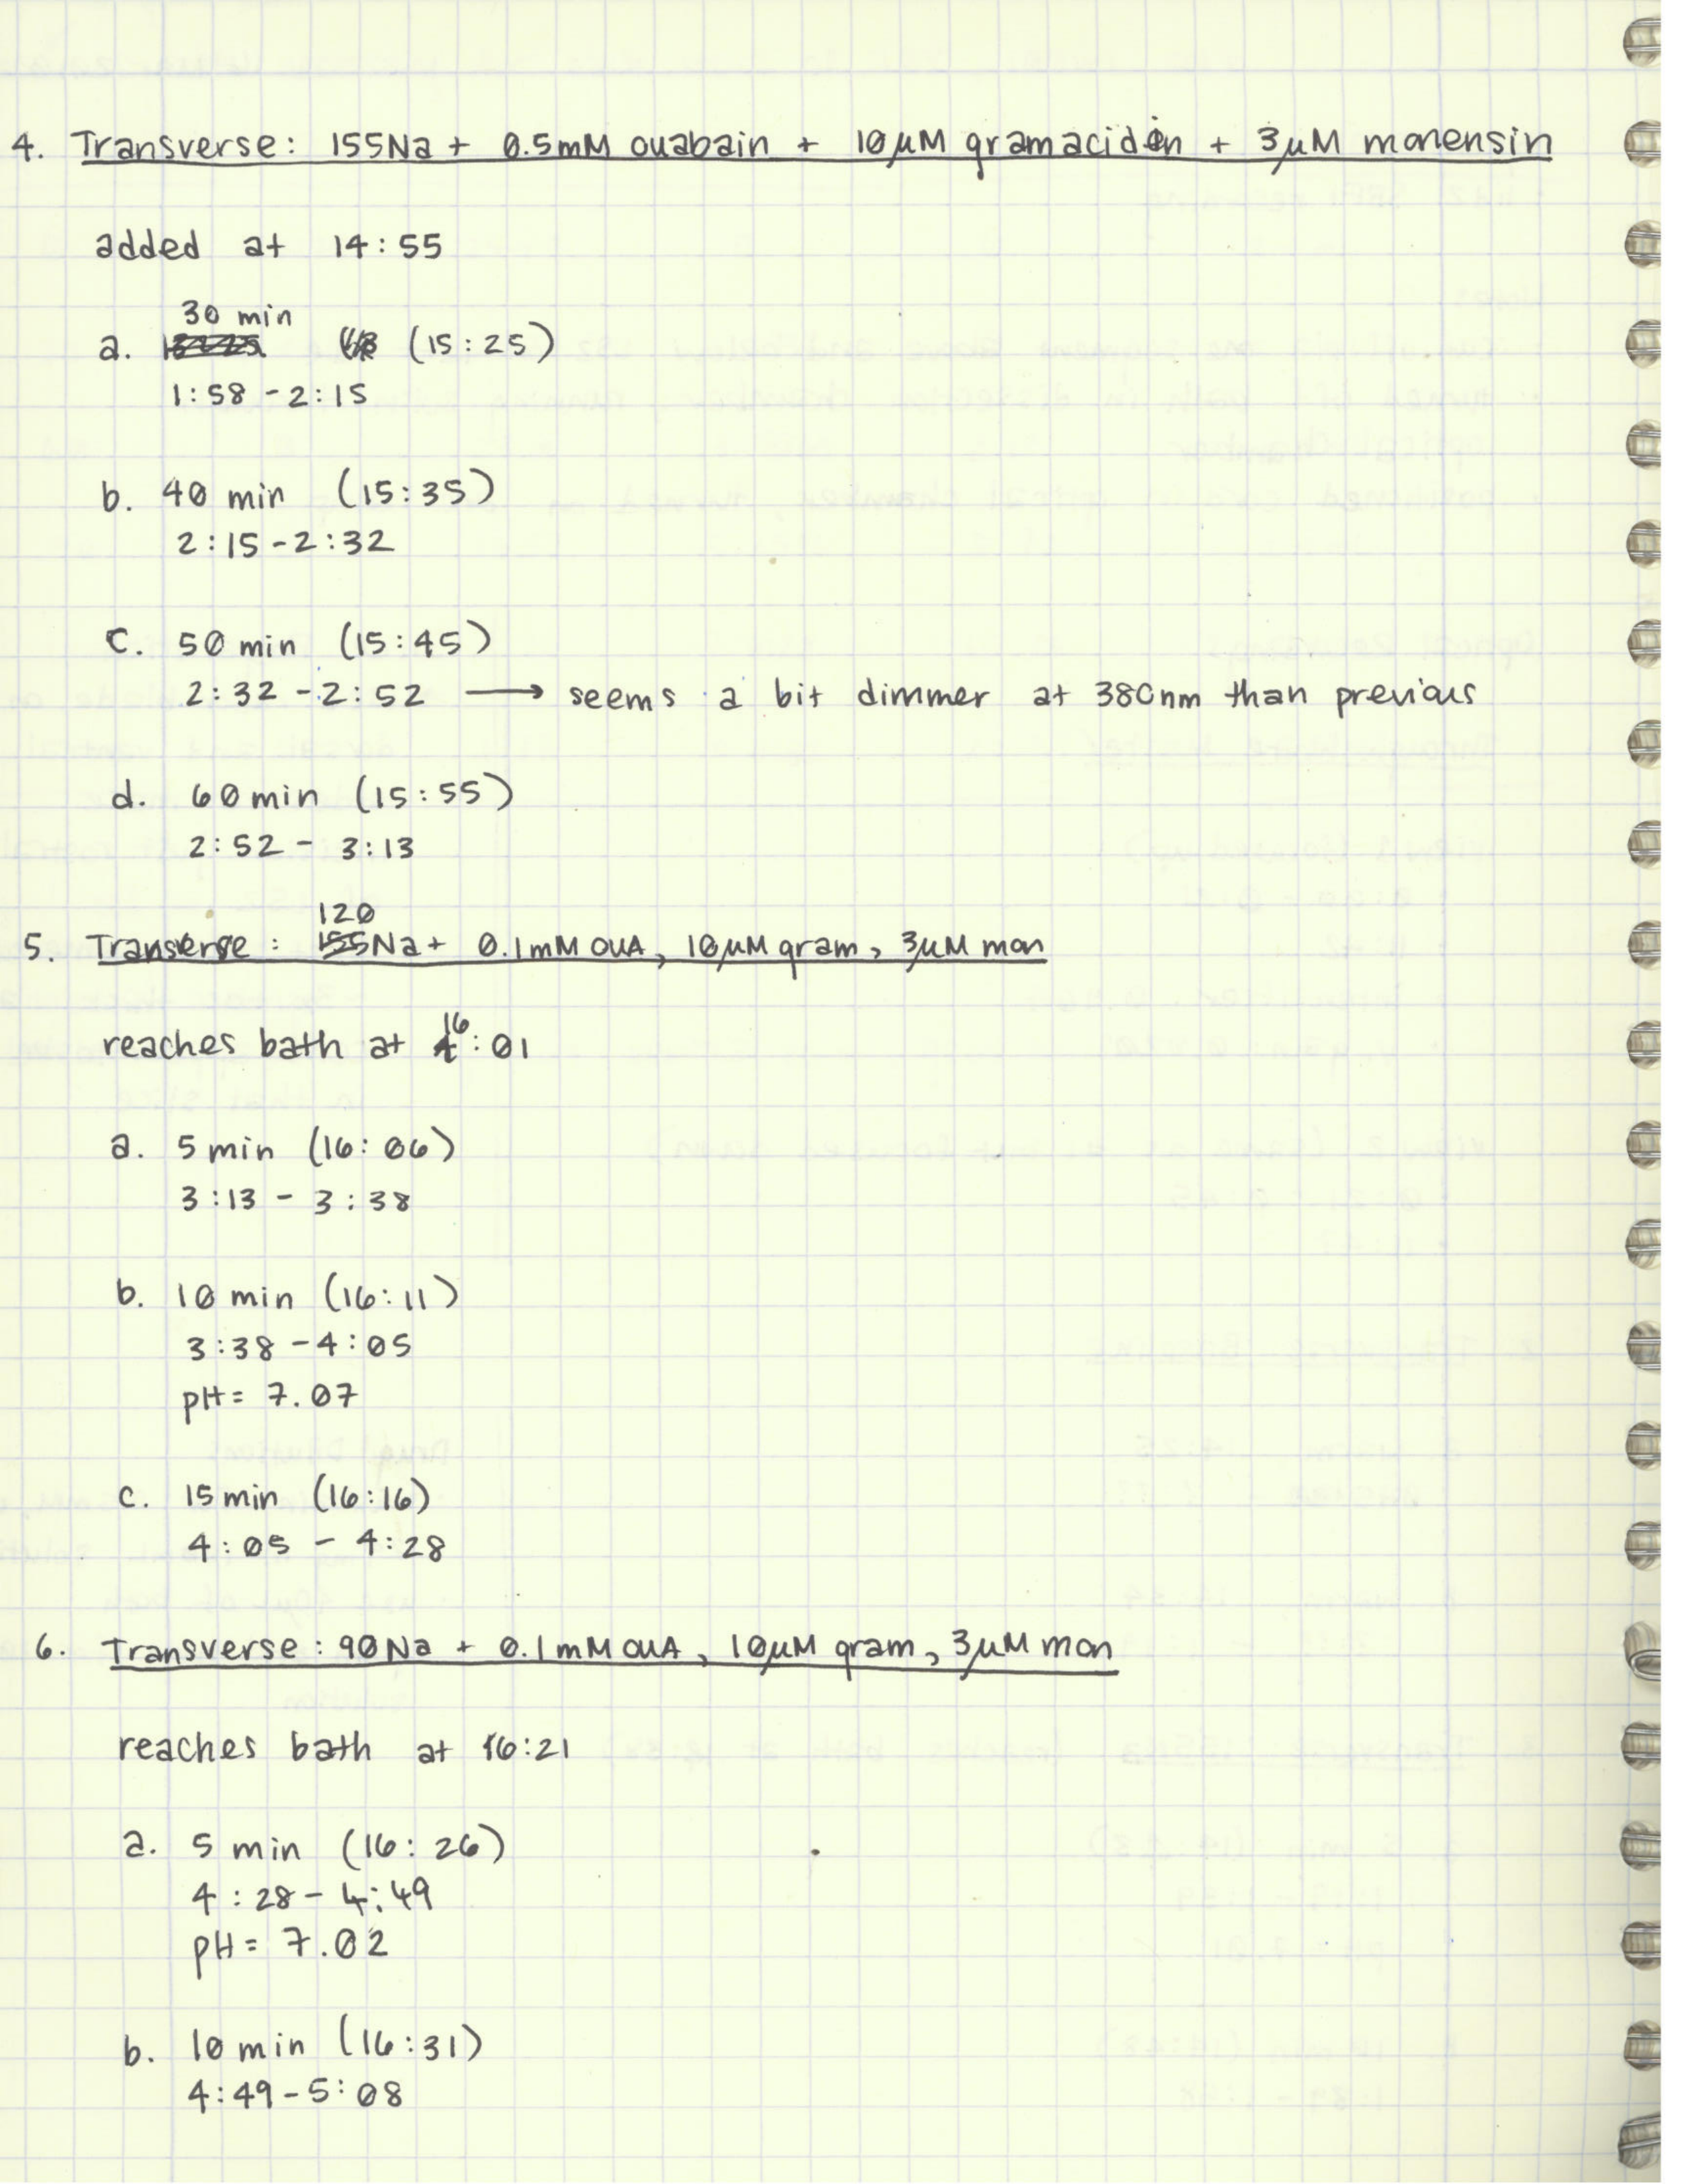 4. Transverse: 155Na + 0.5mM ouabain + 10µM gramacidin + 3µM monensin
added at 14:55
30 min
a. (15:25)
1:58 - 2:15
b. 40 min (15:35)
2:15 - 2:32
c. 50 min (15:45)
2:32 - 2:52 → seems a bit dimmer at 380nm than previous
d. 60 min (15:55)
2:52 - 3:13
120
5. Transverse: 155Na + 0.1mM OUA, 10µM gram, 3µM mon
reaches bath at 16:01
a. 5 min (16:06)
3:13 - 3:38
b. 10 min (16:11)
3:38 - 4:05
pH = 7.07
c. 15 min (16:16)
4:05 - 4:28
6. Transverse: 90Na + 0.1mM OUA, 10µM gram, 3µM mon
reaches bath at 16:21
a. 5 min (16:26)
4:28 - 4:49
pH = 7.02
b. 10 min (16:31)
4:49 - 5:08